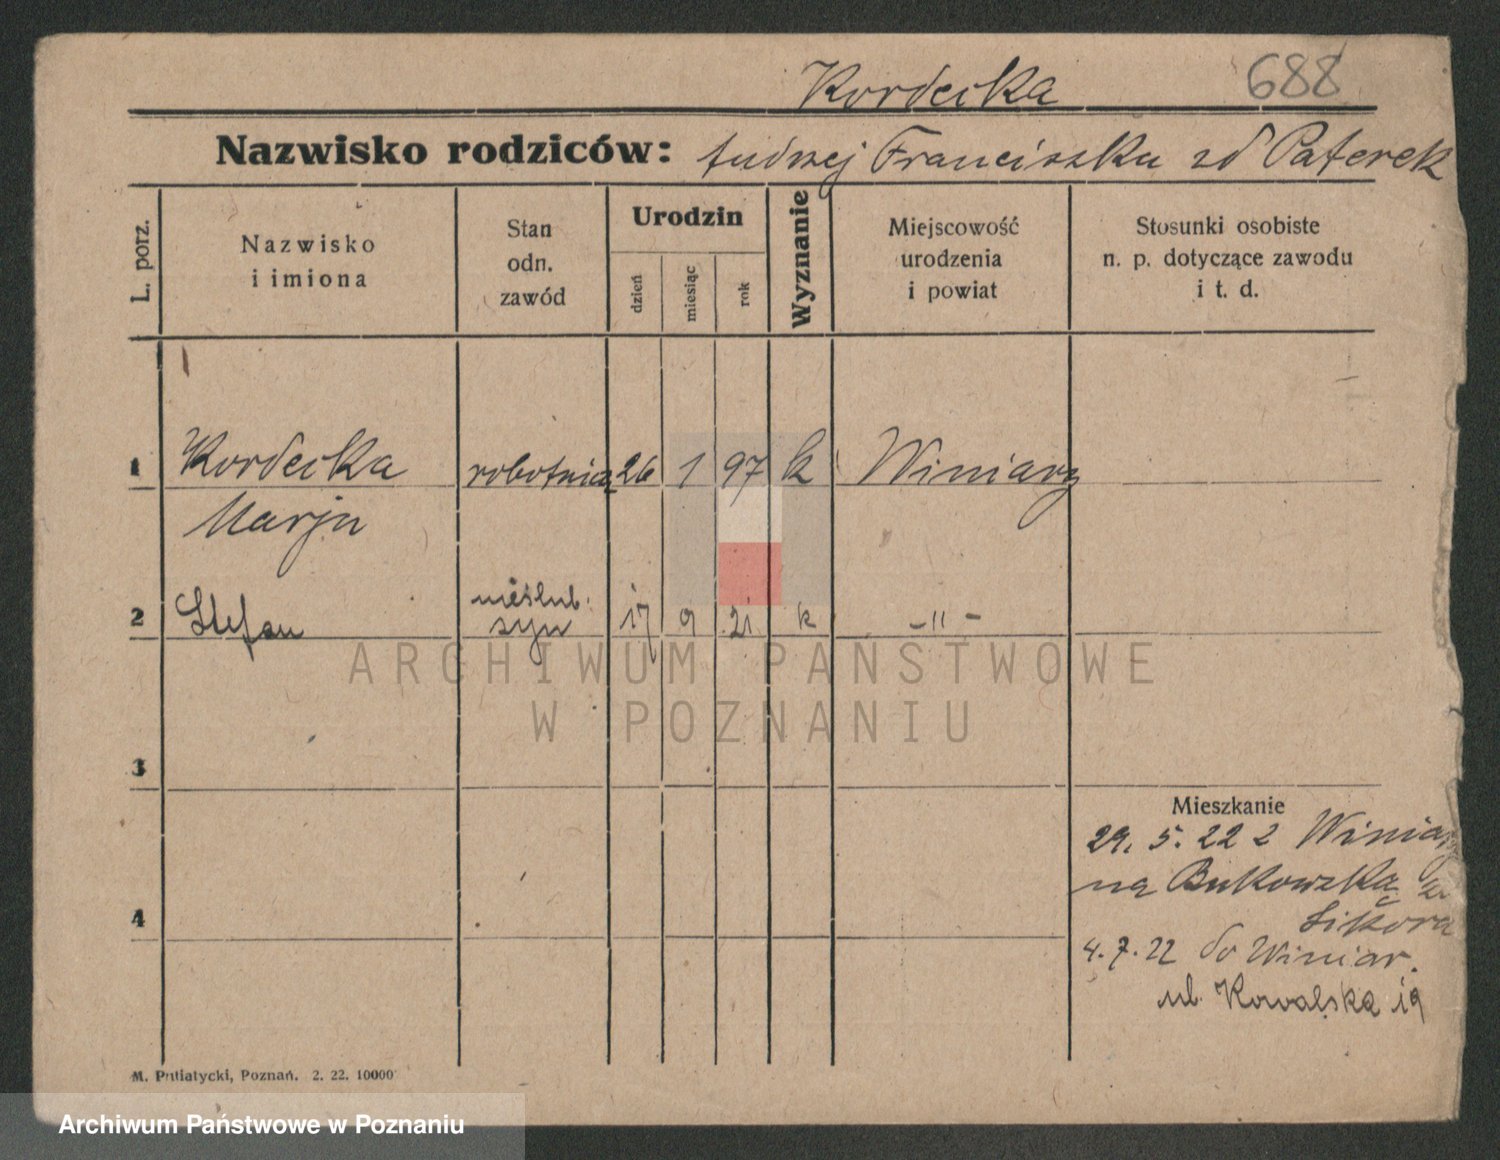 Kordecka 688
Nazwisko rodziców: Andrzej Franciszka zd Paterek
L. porz.
Nazwisko
i imiona
Stan
odn.
zawód
Urodzin
dzień
miesiąc
rok
Wyznanie
Miejscowość
urodzenia
i powiat
Stosunki osobiste
n. p. dotyczące zawodu
i t. d.
1 Kordecka robotnica 26 1 97 k Winiary
Marja
nieślub.
2 Stefan syn 17 9 21 k -"-
ARCHIWUM PAŃSTWOWE
W POZNANIU
3
Mieszkanie
29. 5. 22 z Winiar
na Bukowską
Sikora
4
4. 7. 22 do Winiar.
ul. Kowalska 19
M. Putiatycki, Poznań. 2. 22. 10000
Archiwum Państwowe w Poznaniu